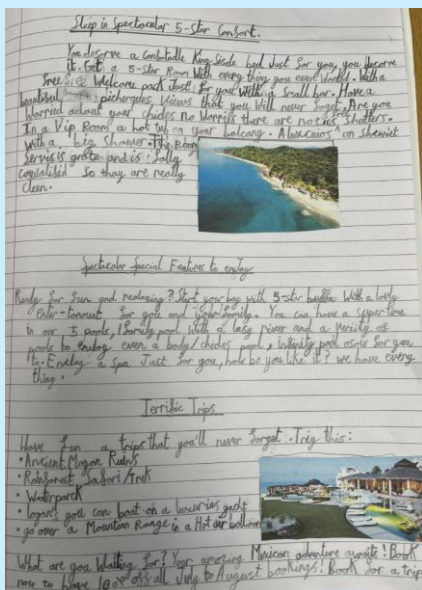 Sleep in Spectacular 5-star Comfort.
You deserve a Comfotable King Size bed Just for you, you deserve
it. Get a 5-star Room With everything you ever wanted. With a
free Welcome pack Just for you With a small bar. Have a
beautiful views that you will never forget. Are you
Worried about your no Worries there are
In a Vip Room a hot tub on your balcony. A on
With a big Shower. The Room
is and is fully
so they are really
clean.
Spectacular Special Features to enjoy
Ready for fun and ? Start your day with 5-star With a lovly
for you and your family. You can have a super time
in our 5 pools, 1 family pool With a lasy river and a of
pools to even a pool, infinity pool for you
to. a spa Just for you, how do you like it? we have every
thing.
Terrific Trips
Have fun a trips that you'll never forget. this:
• Ancient Mayan Ruins
• Rainforest Safari/Trek
• Waterpark
• you can boat on a luxurius yacht
• go over a Mountian Range in a Hot air balloon
What are you Waiting for? Your amazing Mexican adventure ! Book
now to have 10% off all July to August bookings! Book for a trip